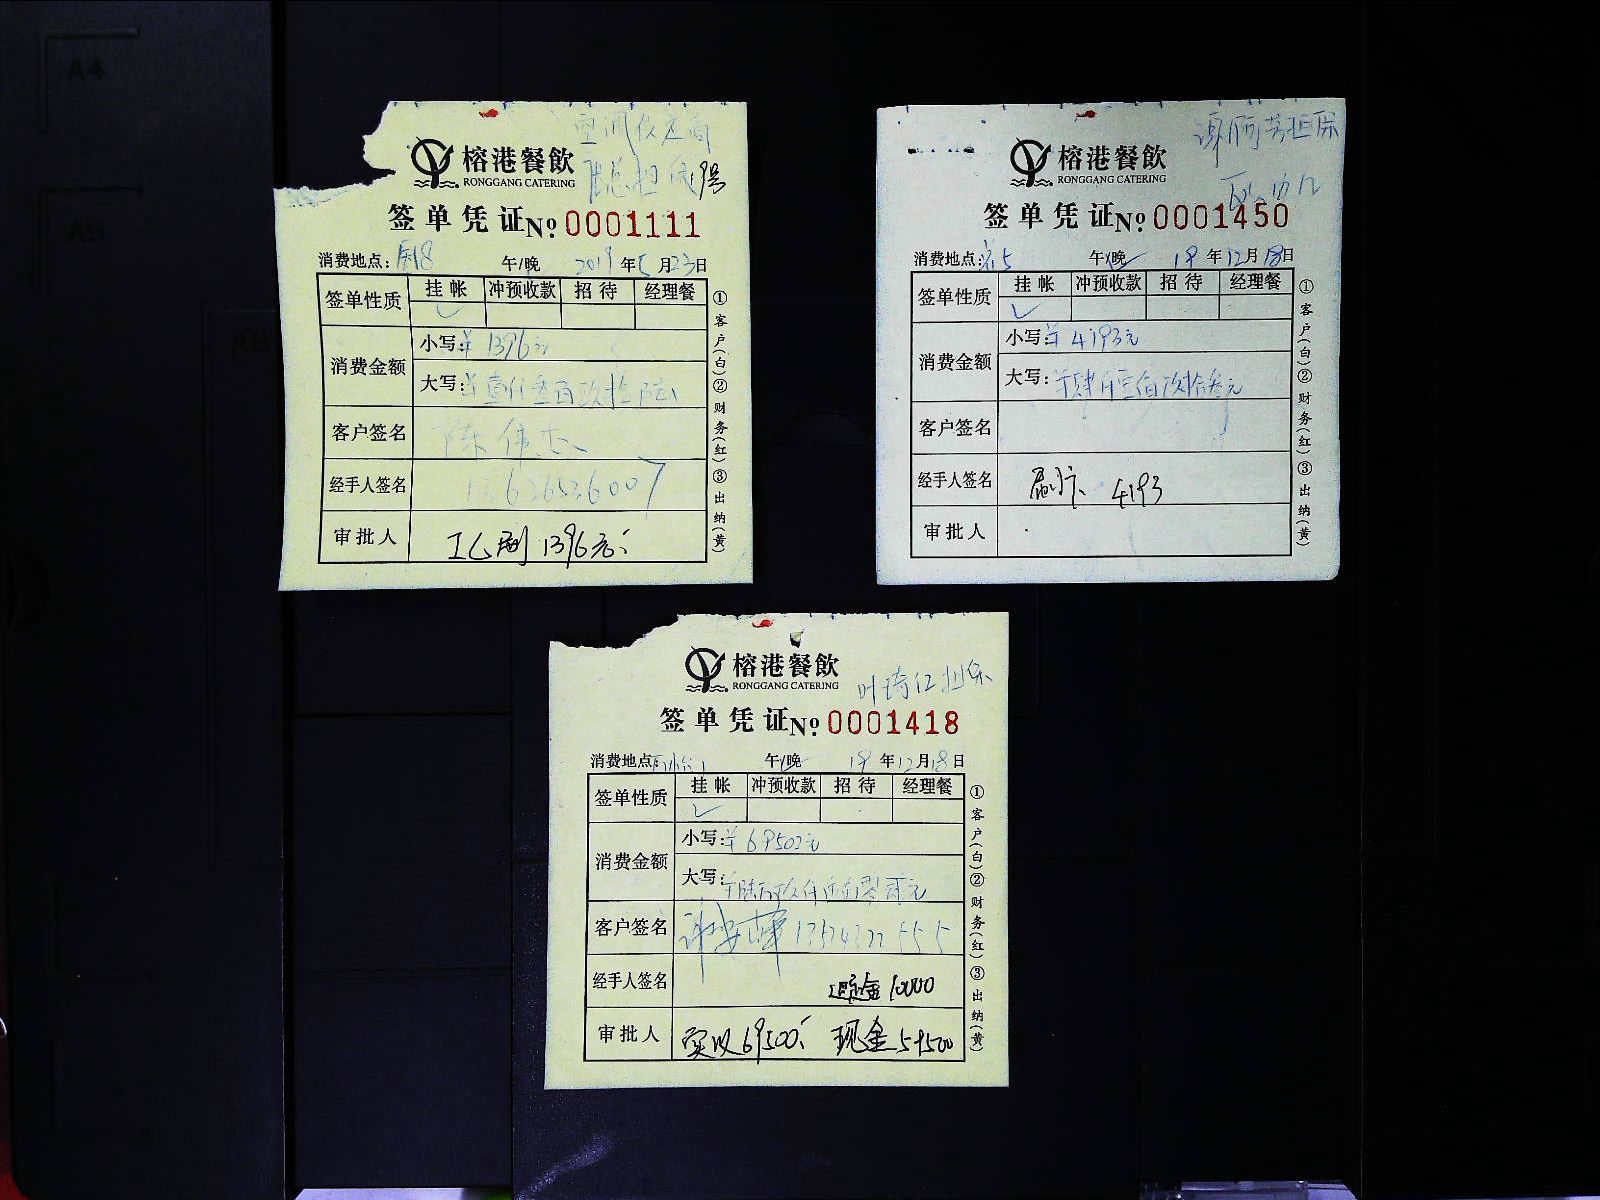 榕港餐飲
RONGGANG CATERING
签单凭证 No 0001111
消费地点: 午/晚 2019年5月23日
签单性质 挂帐 冲预收款 招待 经理餐
消费金额 小写: 1396元
大写: 壹仟叁百玖拾陆
客户签名 陈伟杰
经手人签名
审批人 1396元
①客户(白)②财务(红)③出纳(黄)
榕港餐飲
RONGGANG CATERING
签单凭证 No 0001450
消费地点: 午/晚 19年12月18日
签单性质 挂帐 冲预收款 招待 经理餐
消费金额 小写: 4193元
大写: 肆仟壹佰玖拾叁元
客户签名
经手人签名 刷卡 4193
审批人
①客户(白)②财务(红)③出纳(黄)
叶琦仁担保
榕港餐飲
RONGGANG CATERING
签单凭证 No 0001418
消费地点: 午/晚 19年12月18日
签单性质 挂帐 冲预收款 招待 经理餐
消费金额 小写: 69502元
大写: 陆万玖仟伍佰零贰元
客户签名
经手人签名 定金 10000
审批人 实收 69500 现金 59500
①客户(白)②财务(红)③出纳(黄)